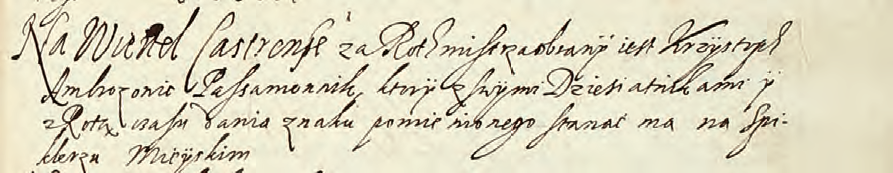 Na Wiertel Castrense za Rothmistrza obrany iest Krzysztoph
Ambrozowic Passamonnik, ktory z swymi Dziesiatnikami y
z Rotą czasu dania znaku pomienionego stanać ma na Spi-
klerzu Mieyskim